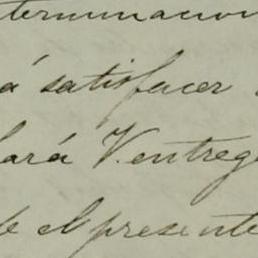 terminacion
á satisfacer
hará V. entrega
de el presente